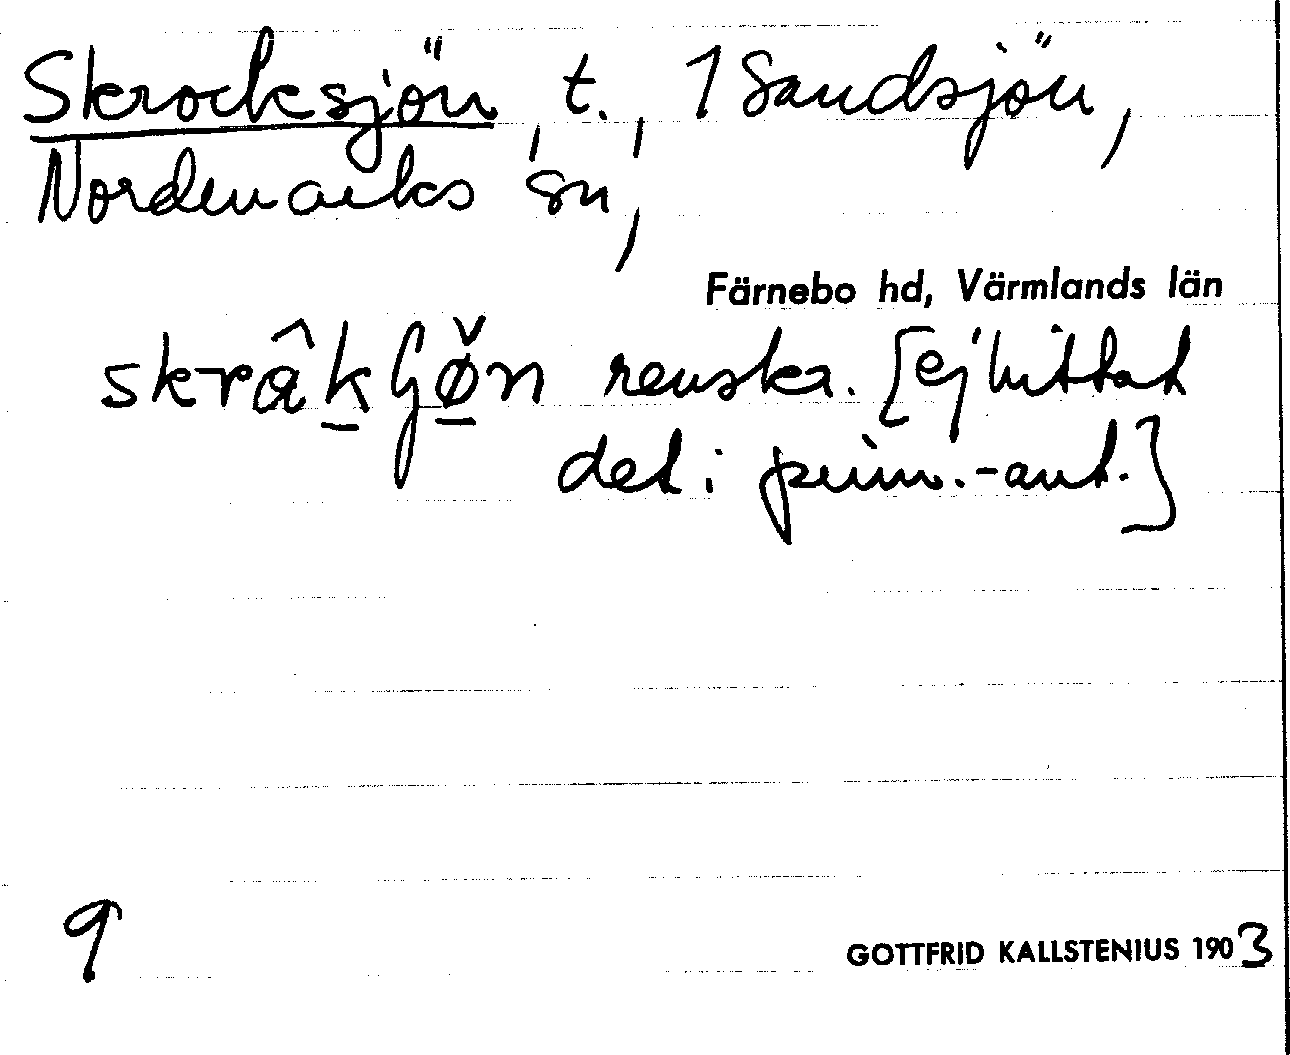 Skrocksjön, t., 1 Sandsjön,
Nordmarks sn,
Färnebo hd, Värmlands län
renskr. [ej hittat
det i prim.-ant.]
9
GOTTFRID KALLSTENIUS 1903